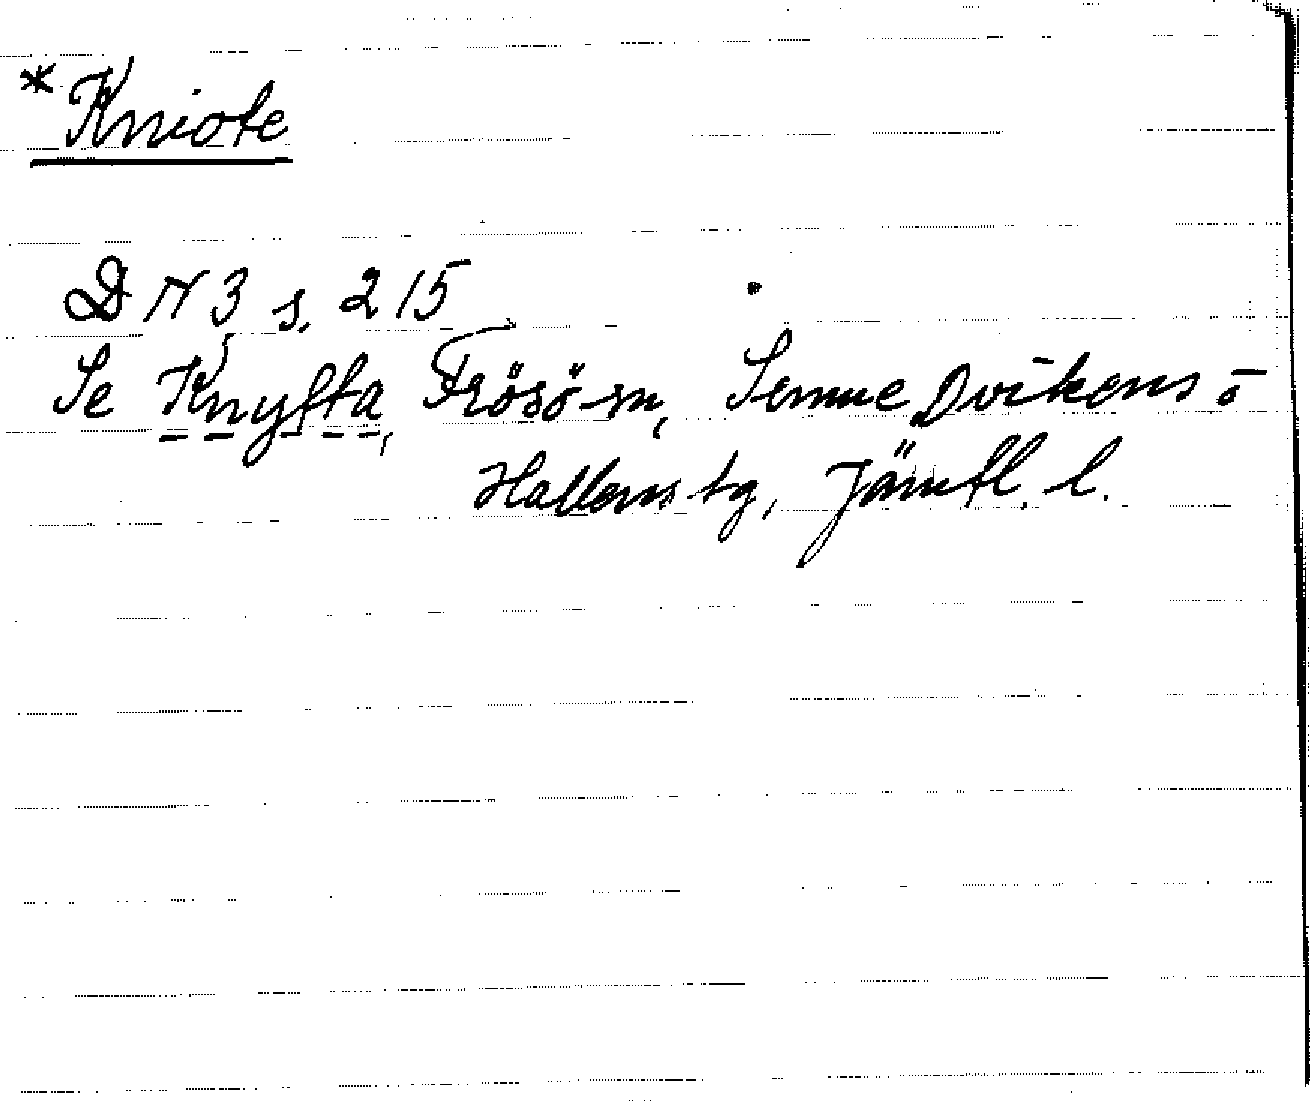 *Kniote
DN 3 s. 215
Se Knytta, Frösö sn, Sunne, Ovikens o
Hallens tg, Jämtl. l.